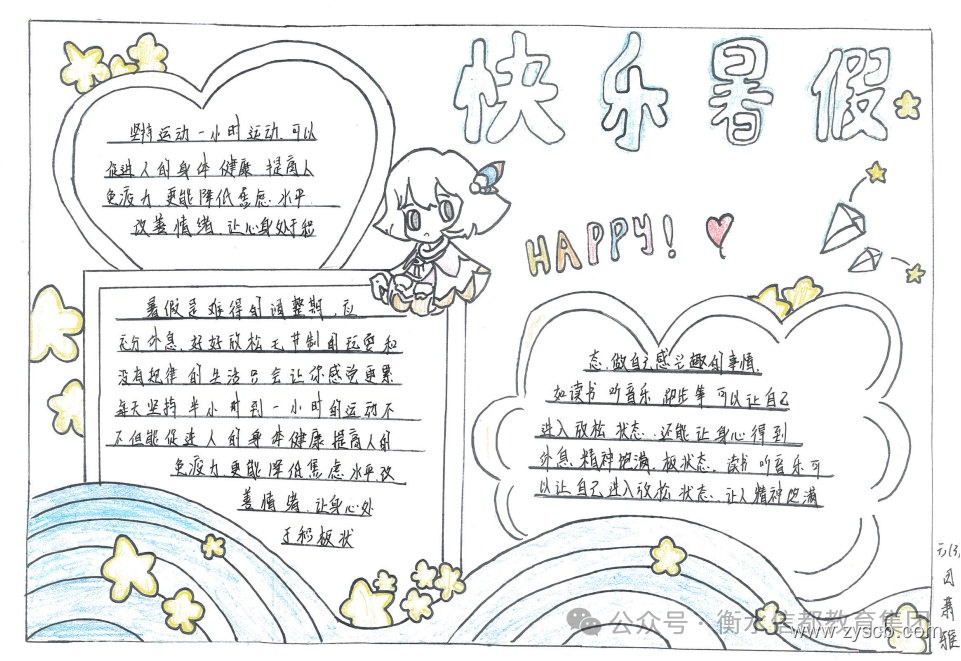 快乐暑假
HAPPY!
坚持运动一小时运动,可以
促进人的身体健康 提高人
免疫力 更能降低焦虑、水平
改善情绪、让心身处于积
暑假是难得的调整期,应
充分休息、好好放松 无节制的玩耍和
没有规律的生活只会让你感觉更累
每天坚持半小时到一小时的运动不
不但能促进人的身体健康 提高人的
免疫力 更能降低焦虑水平 改
善情绪、让身心处
于积极状
态、做自己感兴趣的事情、
如读书 听音乐 跑步等可以让自己
进入放松状态、还能让身心得到
休息、精神饱满、极状态、读书 听音乐可
以让自己进入放松状态、让人精神饱满
公众号·衡水信都教育集团
www.zyscb.com